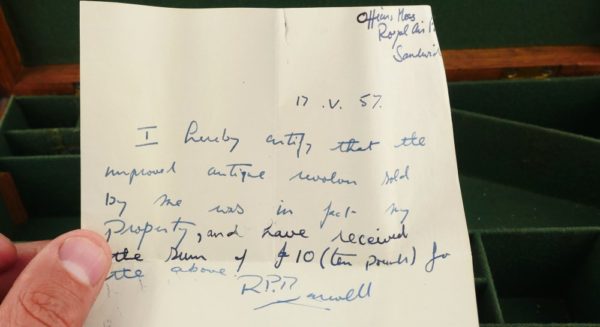 Officers Mess
Royal Air
Sandwi
17 . V . 57.
I hereby certify that the
improved antique revolver sold
by me was in fact my
property, and have received
the sum of £10 (ten pounds) for
the above.